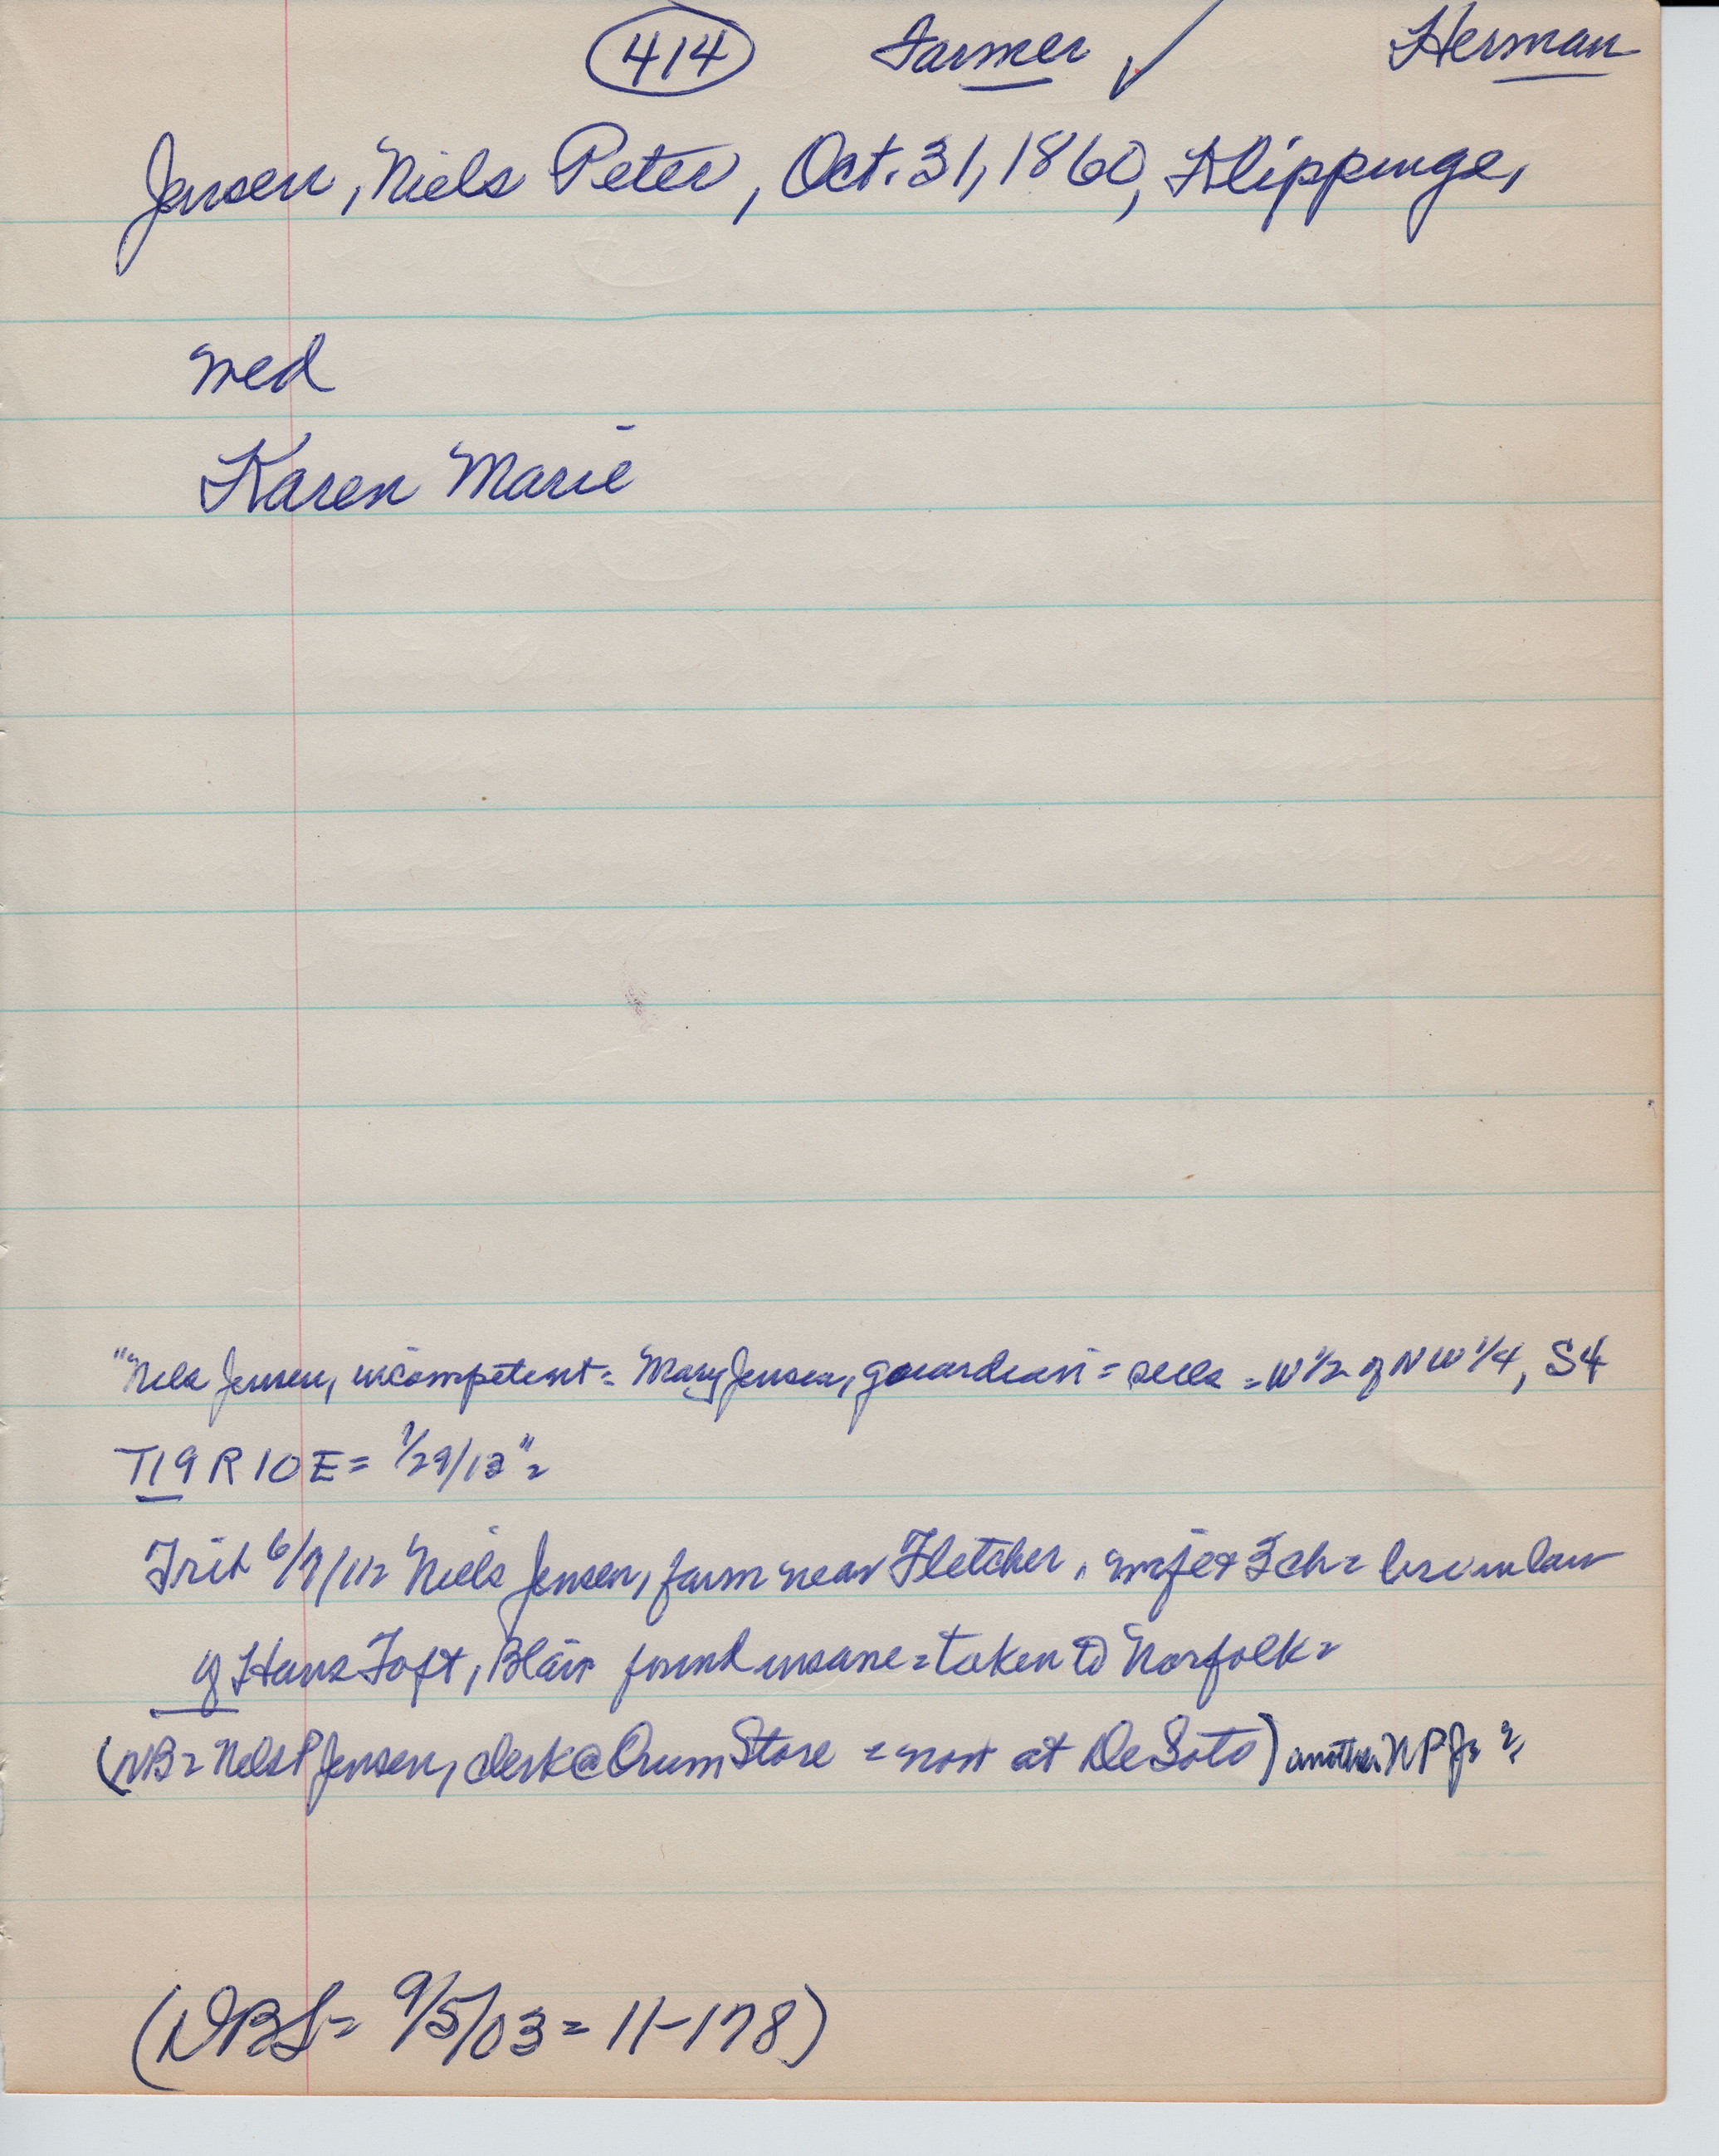 414 Farmer ✓ Herman
Jensen, Niels Peter, Oct. 31, 1860, Klippinge,
med
Karen Marie
"Nels Jensen, incompetent = Mary Jensen, guardian = sells = W 1/2 of NW 1/4, S4
T19 R10E = 1/29/13" =
Trib 6/7/11= Niels Jensen, farm near Fletcher, wife & 3 ch = bro in law
of Hans Toft, Blair found insane = taken to Norfolk =
(NB = Nels P Jensen, clerk @ Crum Store = now at De Soto) another NP J= ?
(DBS= 9/5/03 = 11-178)